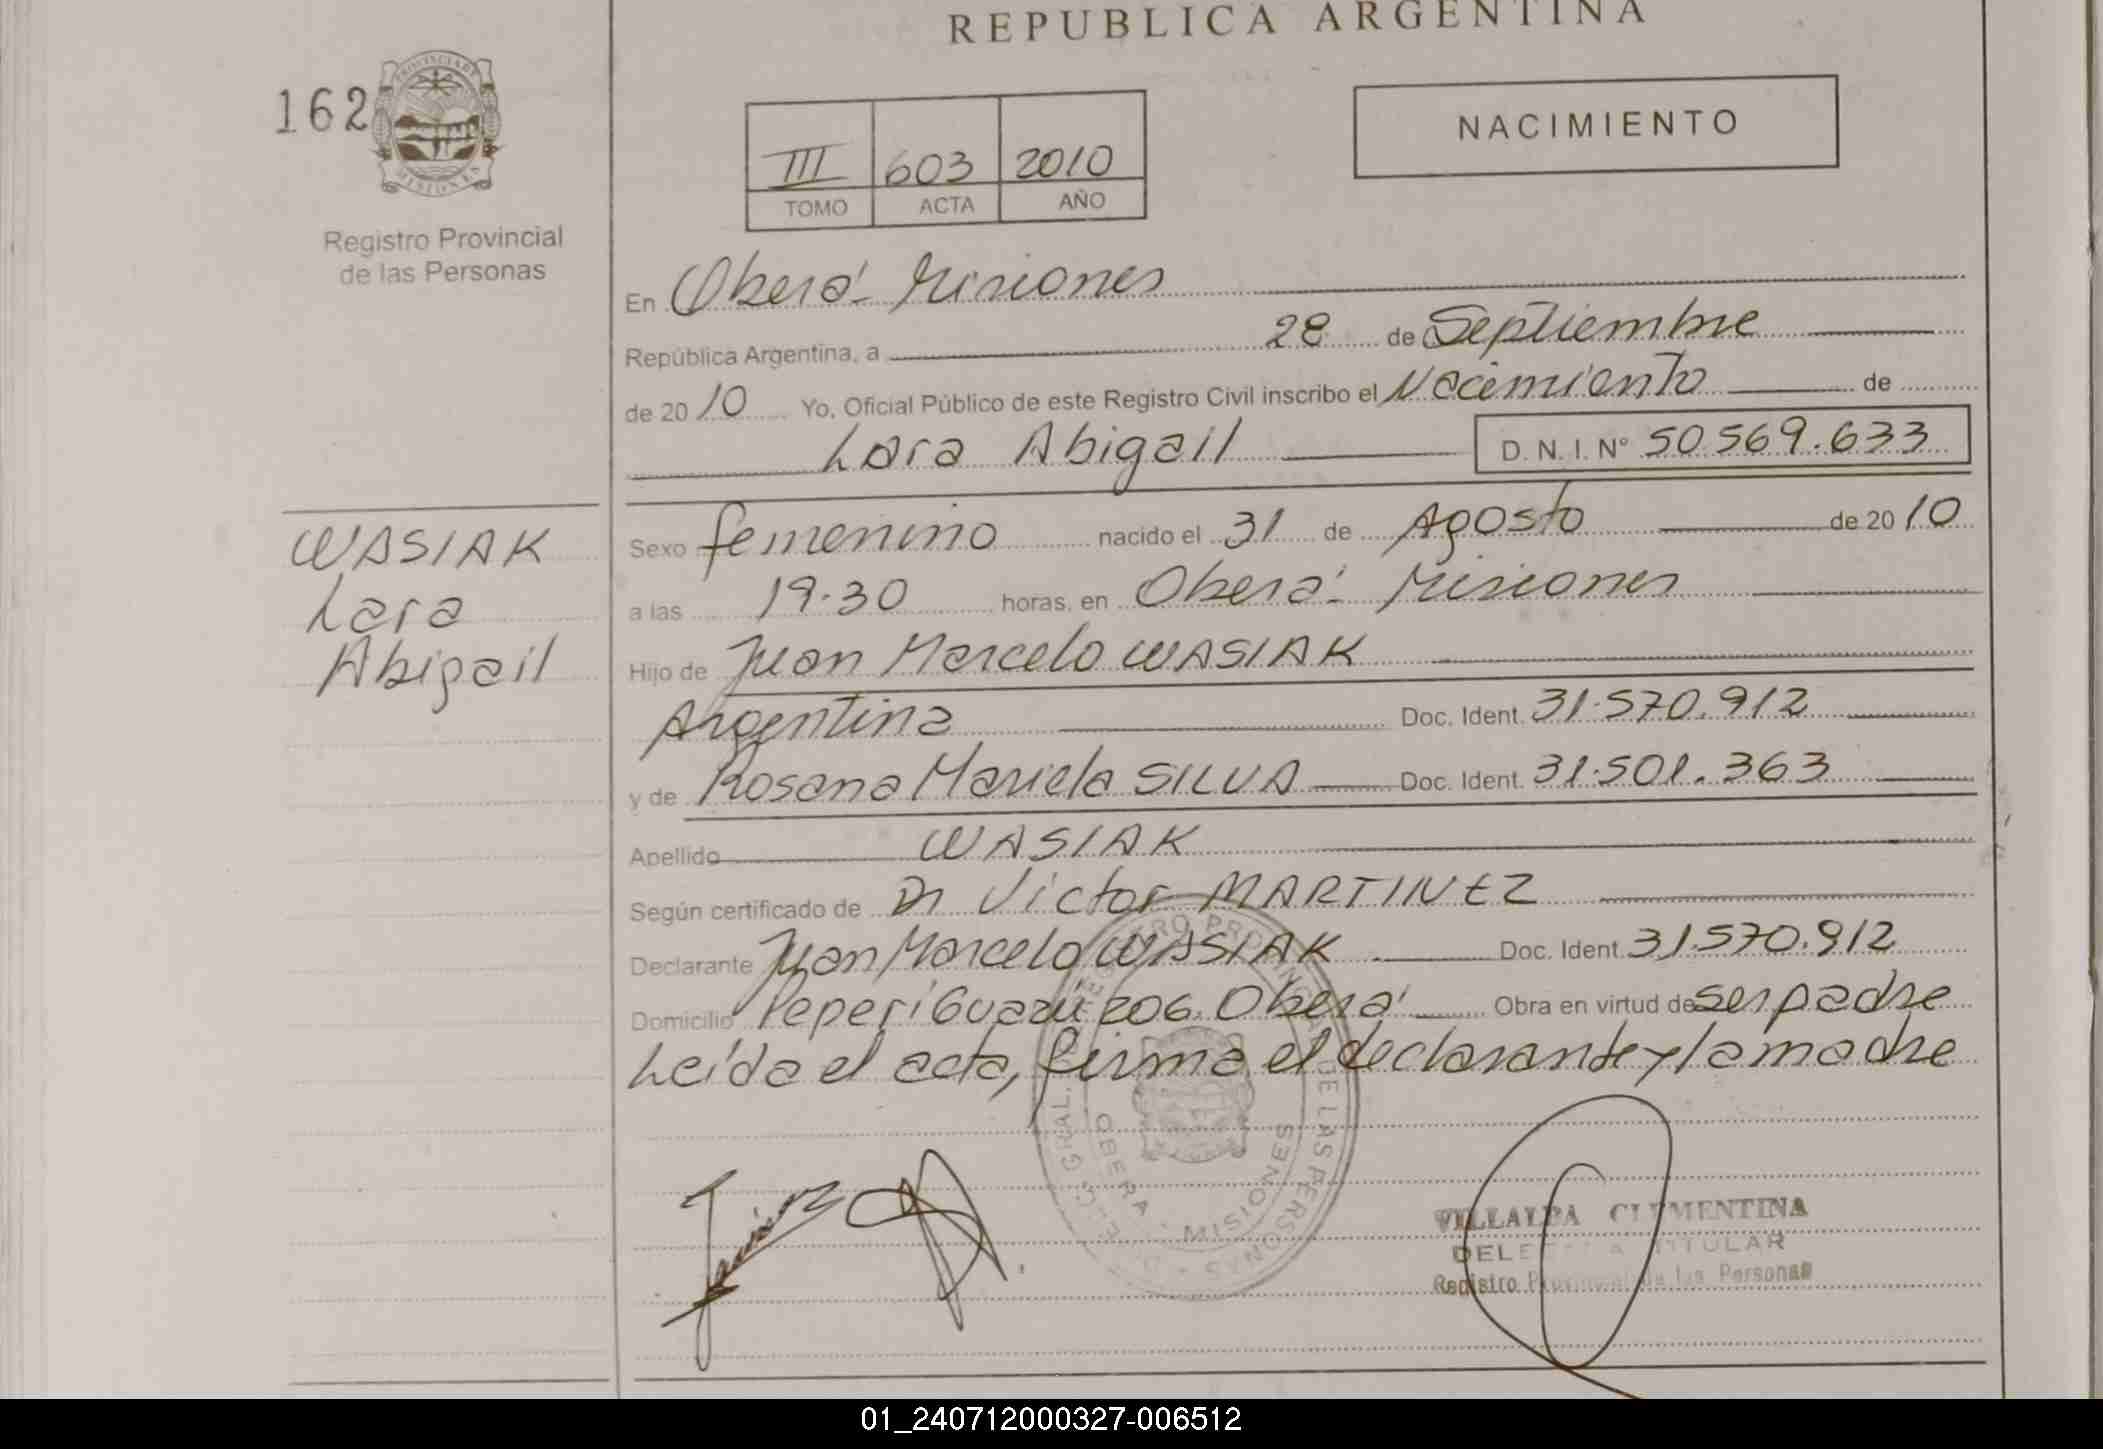 REPUBLICA ARGENTINA
162
PROVINCIA DE
MISIONES
Registro Provincial
de las Personas
NACIMIENTO
III 603 2010
TOMO ACTA AÑO
En Oberá - Misiones
República Argentina, a 28 de Septiembre
de 2010 Yo, Oficial Público de este Registro Civil inscribo el Nacimiento de
Lara Abigail D. N. I. Nº 50.569.633
WASIAK
Lara
Abigail
Sexo femenino nacido el 31 de Agosto de 2010
a las 19.30 horas, en Oberá - Misiones
Hijo de Juan Marcelo WASIAK
Argentina Doc. Ident. 31.570.912
y de Rosana Mariela SILVA Doc. Ident. 31.501.363
Apellido WASIAK
Según certificado de Dr Victor MARTINEZ
Declarante Juan Marcelo WASIAK Doc. Ident. 31.570.912
Domicilio Peperí Guazú 206. Oberá Obra en virtud de ser padre
Leída el acta, firma el declarante y la madre
OBERA - MISIONES
DE LAS PERSONAS
VILLALBA CLEMENTINA
TITULAR
Registro Provincial de las Personas
01_240712000327-006512